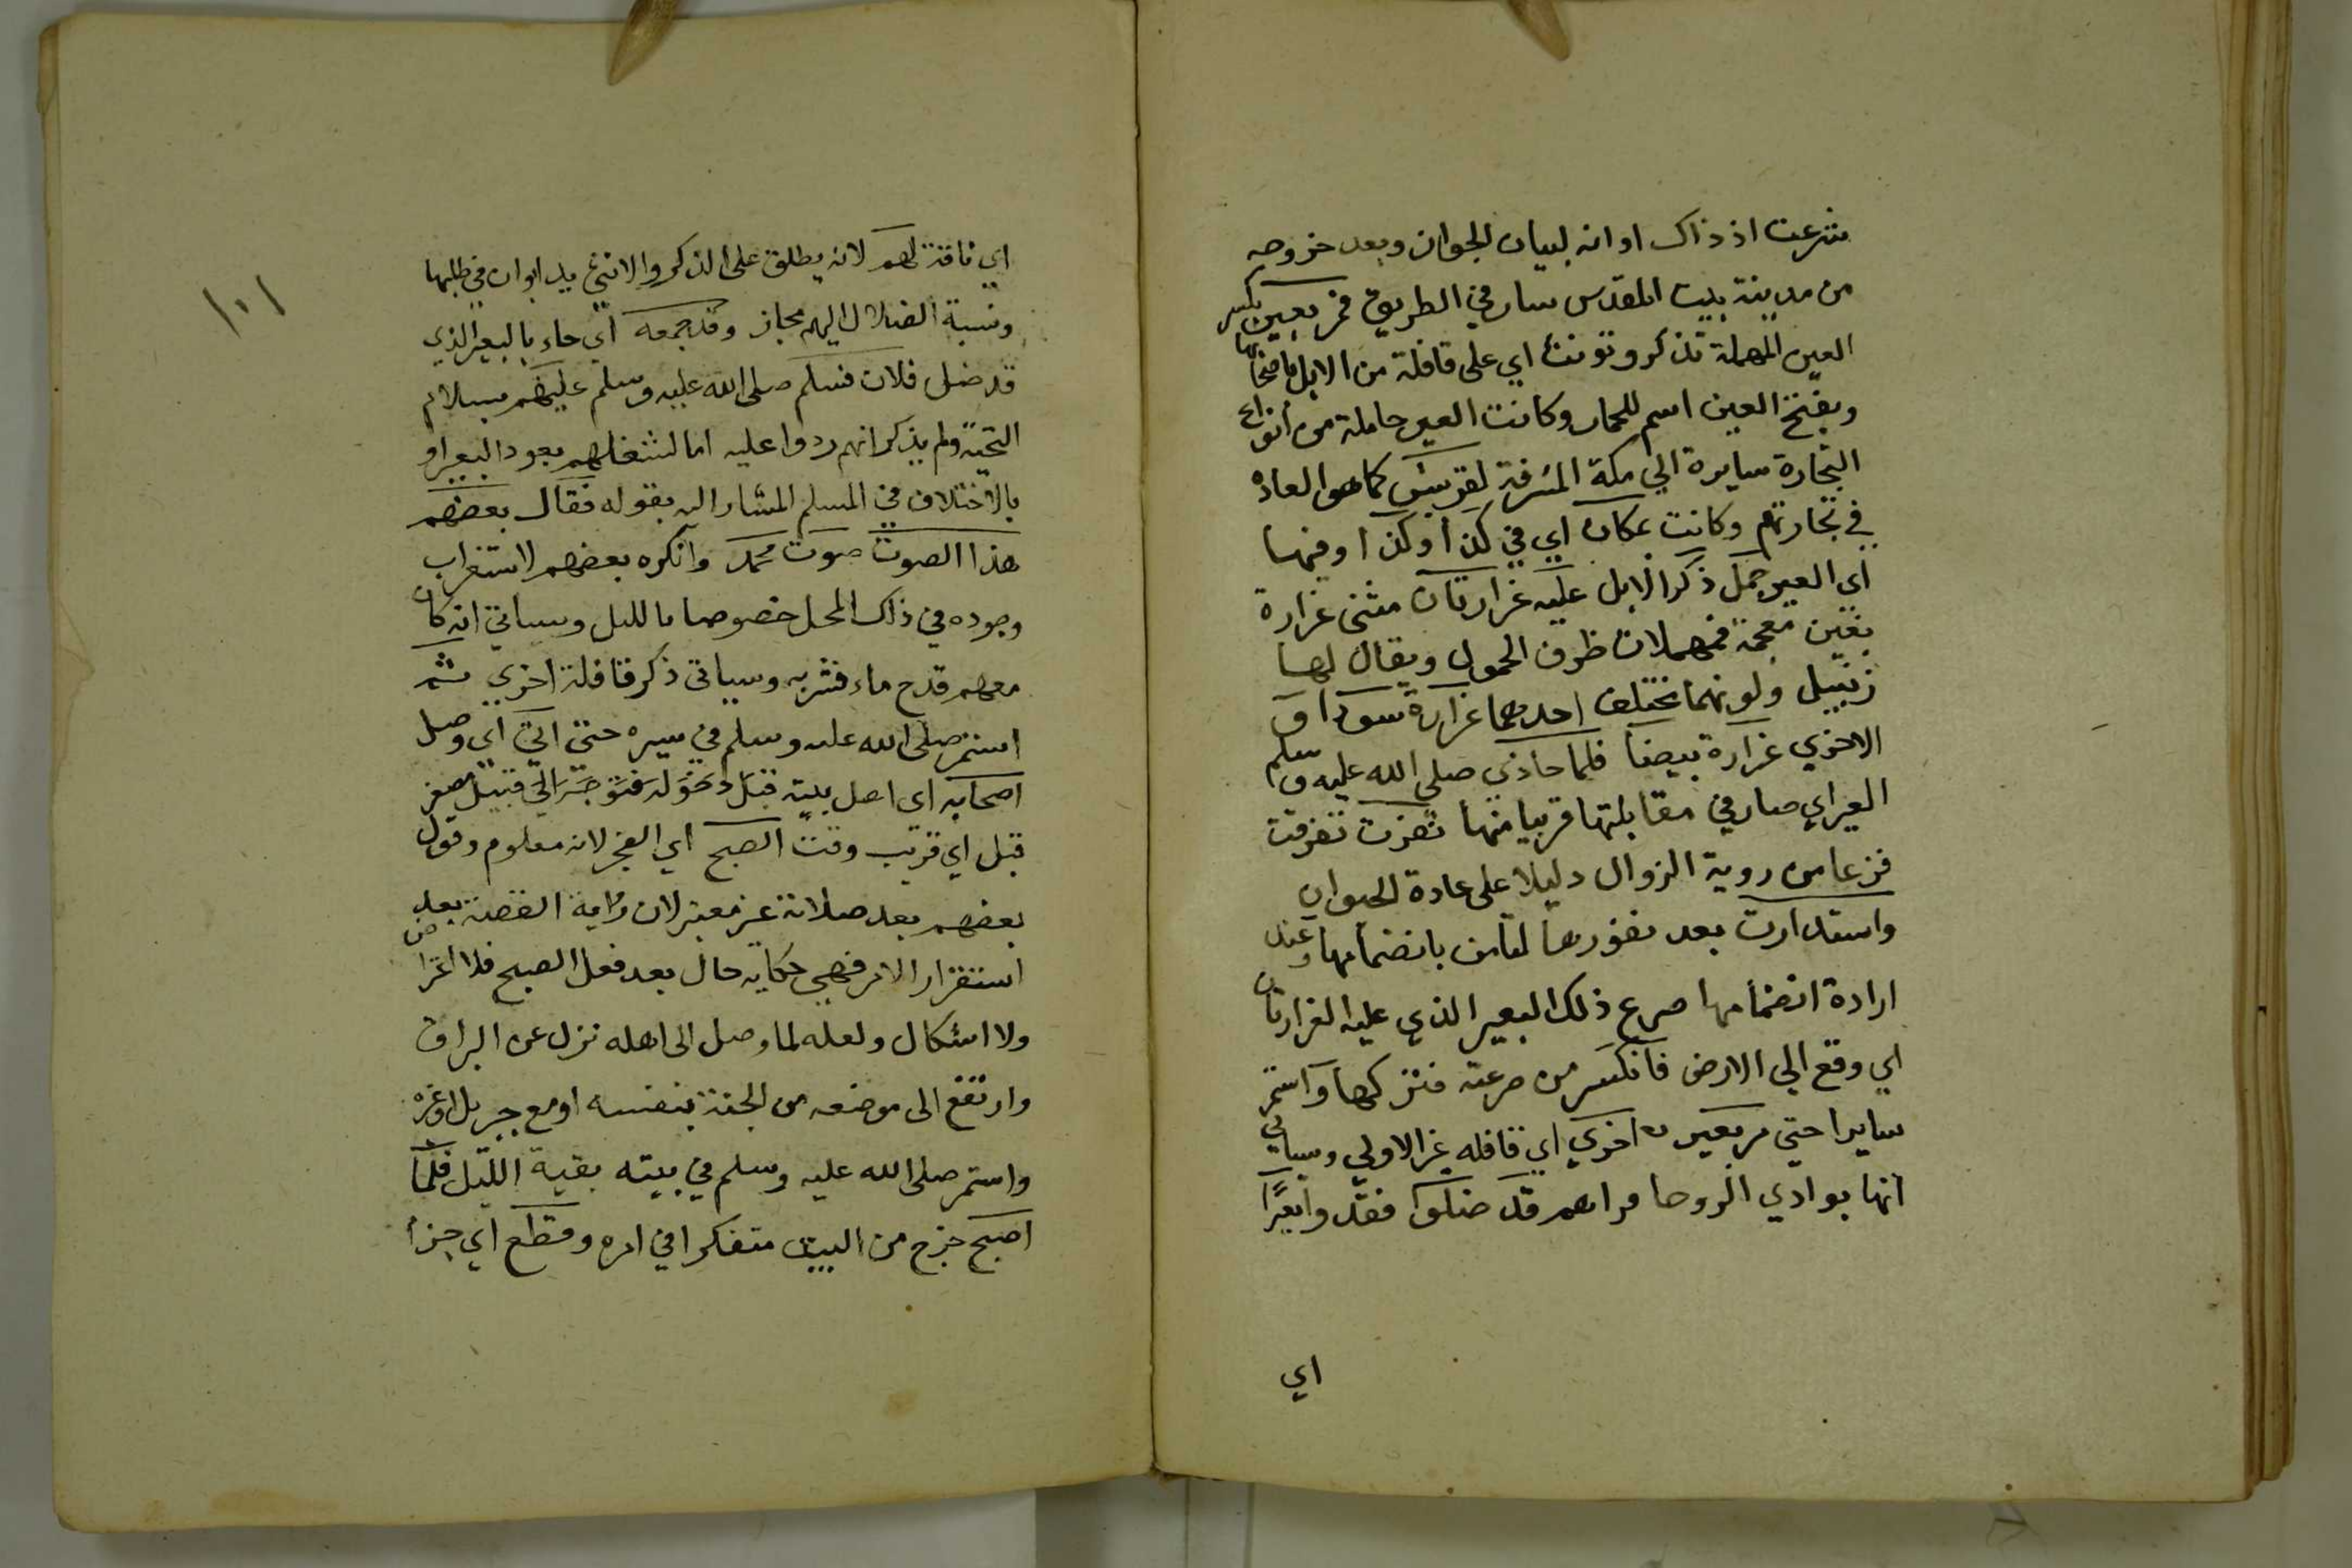 شرعت اذ ذاك او انه لبيان الجواز وبعد خروجه
من مدينة بيت المقدس سار في الطريق فمر بعير بكسر
العين المهملة تذكر وتونث اي على قافلة من الابل باضخا بها
وبفتح العين اسم للحمار وكانت العير حاملة من انواع
التجارة سايرة الي مكة المشرفة لقريش كما هو العاده
في تجارتهم وكانت بمكان اي في كذا وكذا وفيها
اي العير جمل ذكر الابل عليه غرارتان مثنى غرارة
بغين معجمة فمهملات ظرف الحمول ويقال لها
زنبيل ولونهما مختلف احدهما غرارة سودا و
الاخري غرارة بيضا فلما حاذي صلي الله عليه وسلم
العير اي صار في مقابلتها قريبا منها نفرت تفرقت
فزعا من روية الزوال دليلا على عادة الحيوان
واستدارت بعد نفورها لتامن بانضمامها وعند
ارادة انضمامها صرع ذلك البعير الذي عليه الغرارتان
اي وقع الي الارض فانكسر من صرعته فتركها واستمر
سايرا حتي مر بعير اخري اي قافله غير الاولي وسياتي
انها بوادي الروحا فراهم قد ضلوا فقدوا بعيرا
اي
١٠١
اي ناقة لهم لانه يطلق على الذكر والانثي بل ابوان في طلبها
ونسبة الضلال اليهم مجاز وقد جمعه اي جاء بالبعير الذي
قد ضل فلان فسلم صلى الله عليه وسلم عليهم بسلام
التحية ولم يذكر انهم ردوا عليه اما لشغلهم بعود البعير او
بالاختلاف في المسلم المشار اليه بقوله فقال بعضهم
هذا الصوت صوت محمد وانكره بعضهم لاستغراب
وجوده في ذاك المحل خصوصا بالليل وسياتي انه كان
معهم قدح ماء فشربه وسياتي ذكر قافلة اخري ثم
استمر صلى الله عليه وسلم في سيره حتى اتي اي وصل
اصحابه اي اهل بيته قبل دخوله فتوجه الي قبيل مصغر
قبل اي قريب وقت الصبح اي الفجر لانه معلوم وقول
بعضهم بعد صلاته غير معتبر لان رواية القصة بعد
استقرار الامر فهي حكاية حال بعد فعل الصبح فلا اعتراض
ولا اشكال ولعله لما وصل الى اهله نزل عن البراق
وارتفع الى موضعه من الجنة بنفسه او مع جبريل او غيره
واستمر صلى الله عليه وسلم في بيته بقية الليل فلما
اصبح خرج من البيت متفكرا في امره وقطع اي جزا